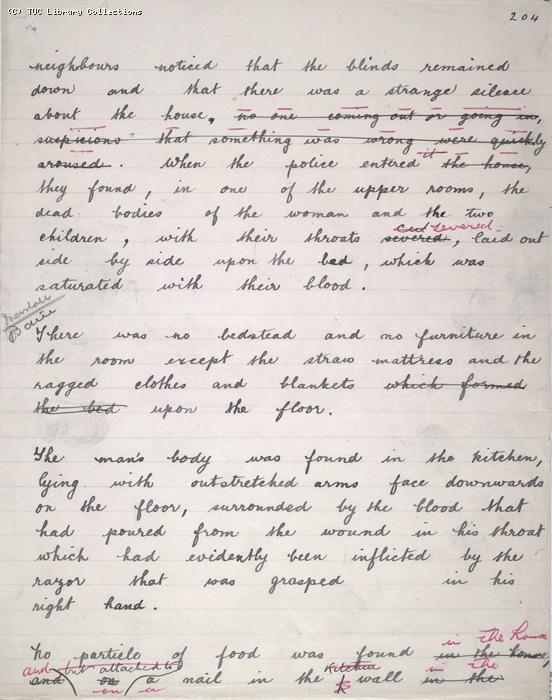 (C) TUC Library Collections
204
neighbours noticed that the blinds remained
down and that there was a strange silence
about the house, no one coming out or going in,
suspicions that something was wrong were quickly
aroused. When the police entred it the house,
they found, in one of the upper rooms, the
dead bodies of the woman and the two
cut severed
children, with their throats severed, laid out
side by side upon the bed, which was
saturated with their blood.
There was no bedstead and no furniture in
the room except the straw mattress and the
ragged clothes and blankets which formed
the bed upon the floor.
The man's body was found in the kitchen,
lying with outstretched arms face downwards
on the floor, surrounded by the blood that
had poured from the wound in his throat
which had evidently been inflicted by the
razor that was grasped in his
right hand.
in the House
No particle of food was found in the house,
and but attached to kitchen in the
and on a nail in the wall in the
on a